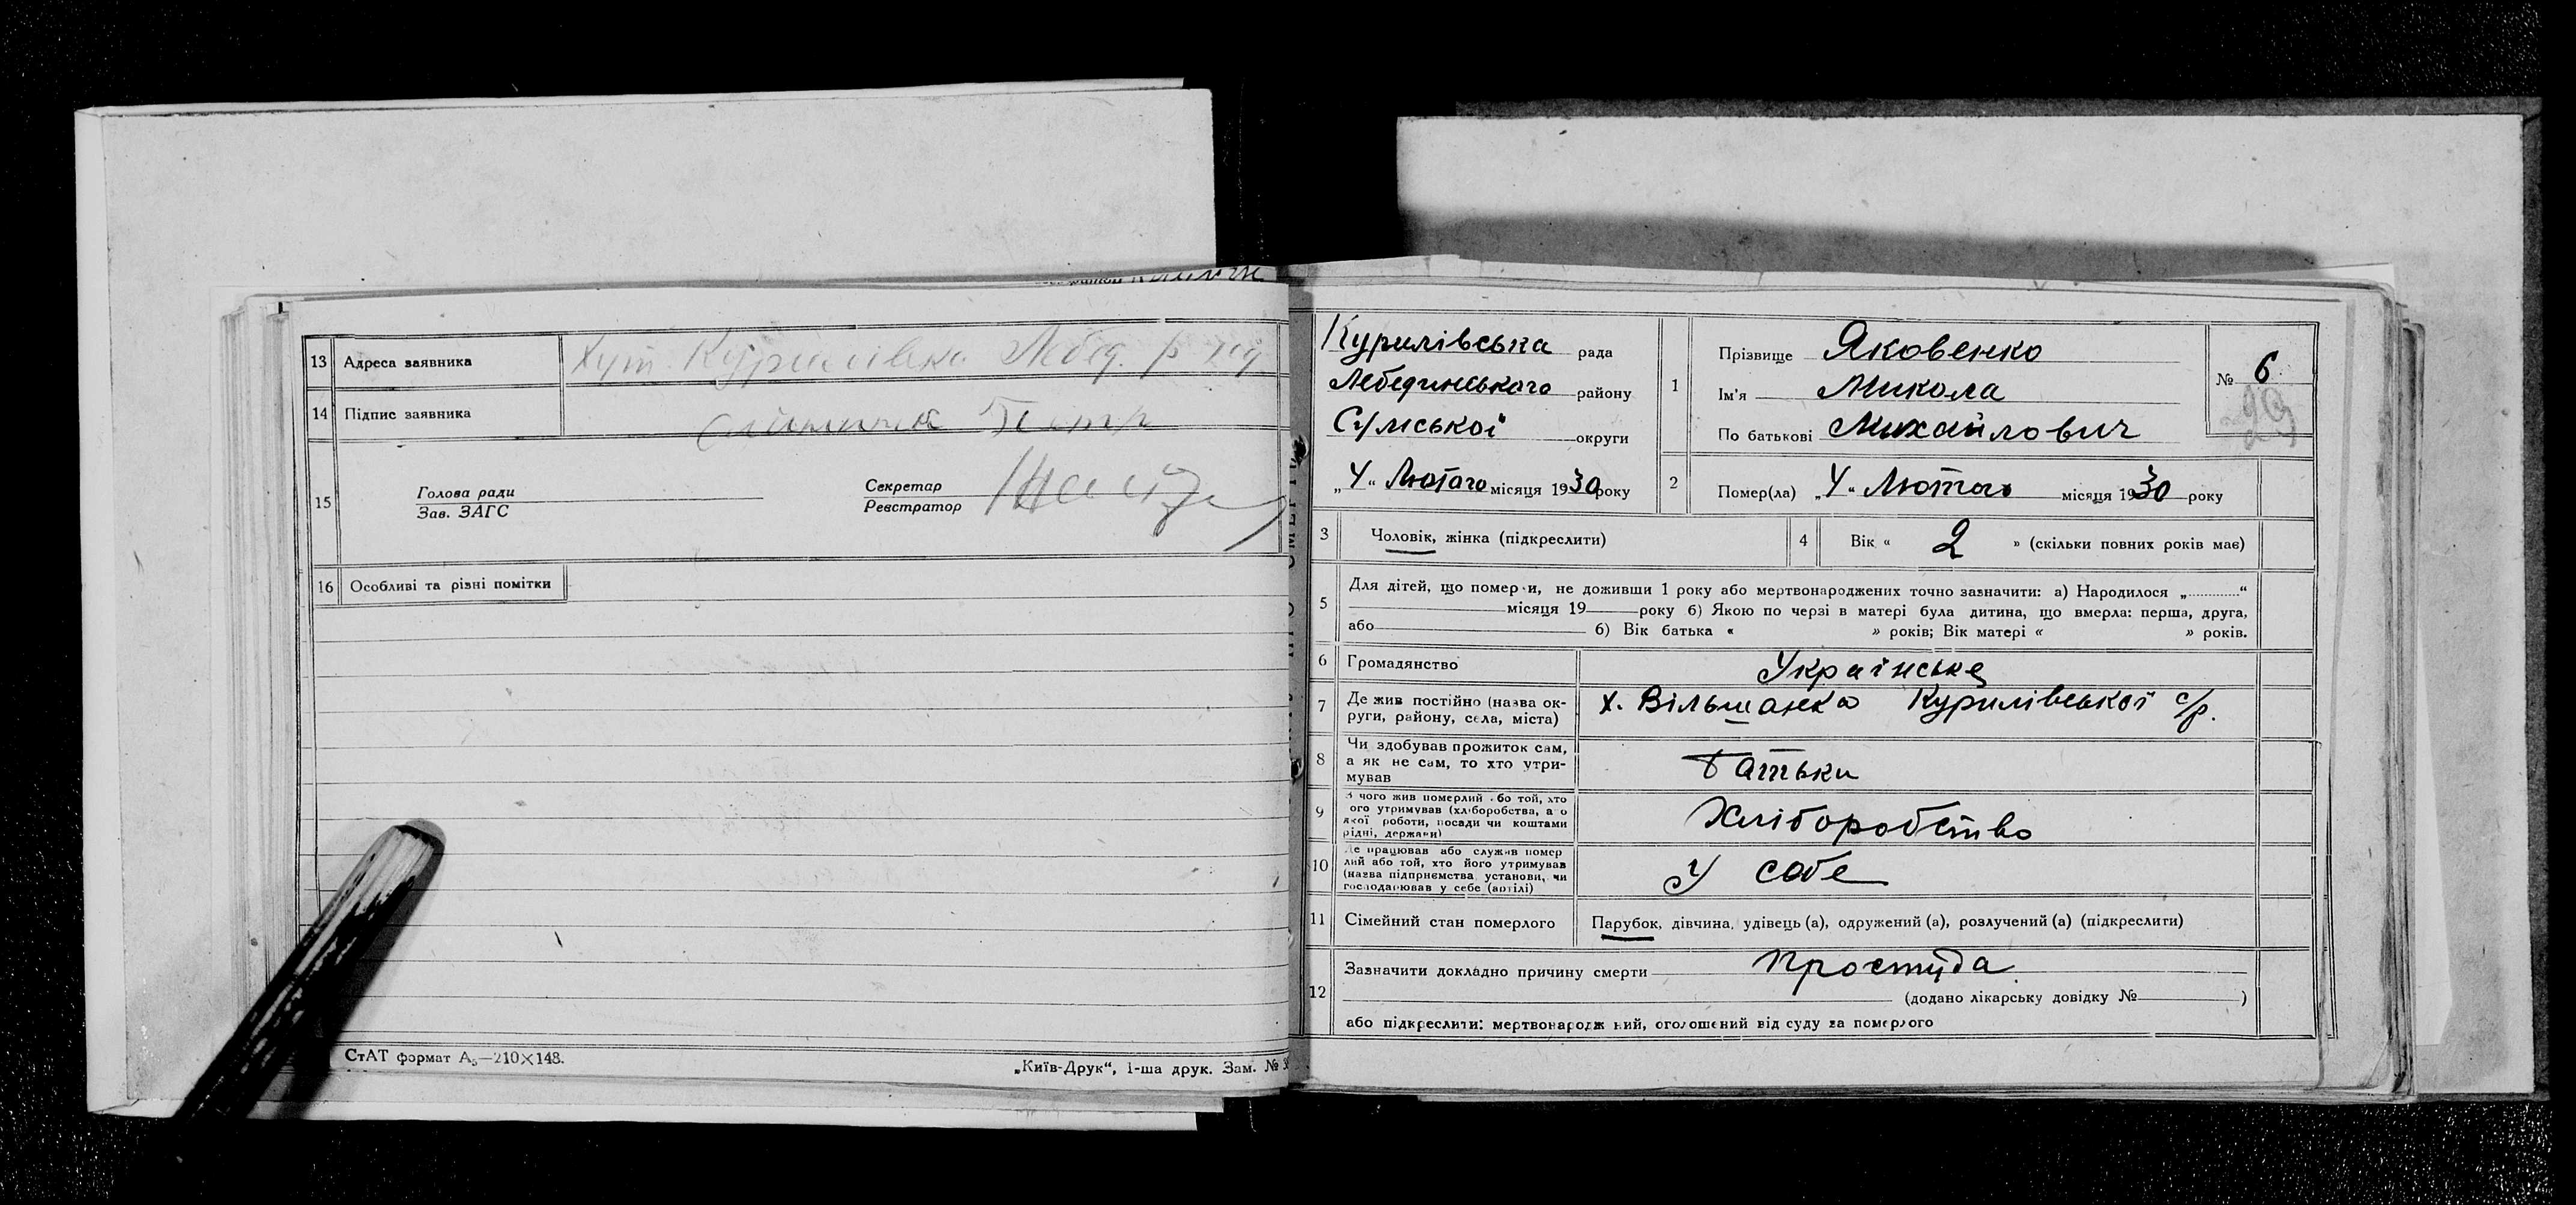 13 Адреса заявника Хут. Курилівка Лебед. р
14 Підпис заявника Петр
15 Голова ради
Зав. ЗАГС
Секретар
Реєстратор
16 Особливі та різні помітки
СтАТ формат А₅—210×148.
„Київ-Друк“, 1-ша друк. Зам. №
Курилівська рада
Лебединського району
Сумської округи
„4“ Лютого місяця 1930 року
1 Прізвище Яковенко
Ім'я Микола
По батькові Михайлович
№ 6
29
2 Помер(ла) „4“ Лютого місяця 1930 року
3 Чоловік, жінка (підкреслити)
4 Вік « 2 » (скільки повних років має)
5 Для дітей, що помер и, не доживши 1 року або мертвонароджених точно зазначити: а) Народилося „ “
місяця 19 року б) Якою по черзі в матері була дитина, що вмерла: перша, друга,
або б) Вік батька « » років; Вік матері « » років.
6 Громадянство Українське
7 Де жив постійно (назва ок-
руги, району, села, міста) х. Вільшанка Курилівської с/р.
8 Чи здобував прожиток сам,
а як не сам, то хто утри-
мував Батьки
9 З чого жив померлий або той, хто
ого утримував (хліборобства, а о
якої роботи, посади чи коштами
рідні, держави) Хліборобство
10 Де працював або служив помер
лий або той, хто його утримував
(назва підприємства установи, чи
господарював у себе (артілі) У себе
11 Сімейний стан померлого Парубок, дівчина, удівець (а), одружений (а), розлучений (а) (підкреслити)
12 Зазначити докладно причину смерти Простуда
(додано лікарську довідку № )
або підкреслити: мертвонародж ний, оголошений від суду за померлого